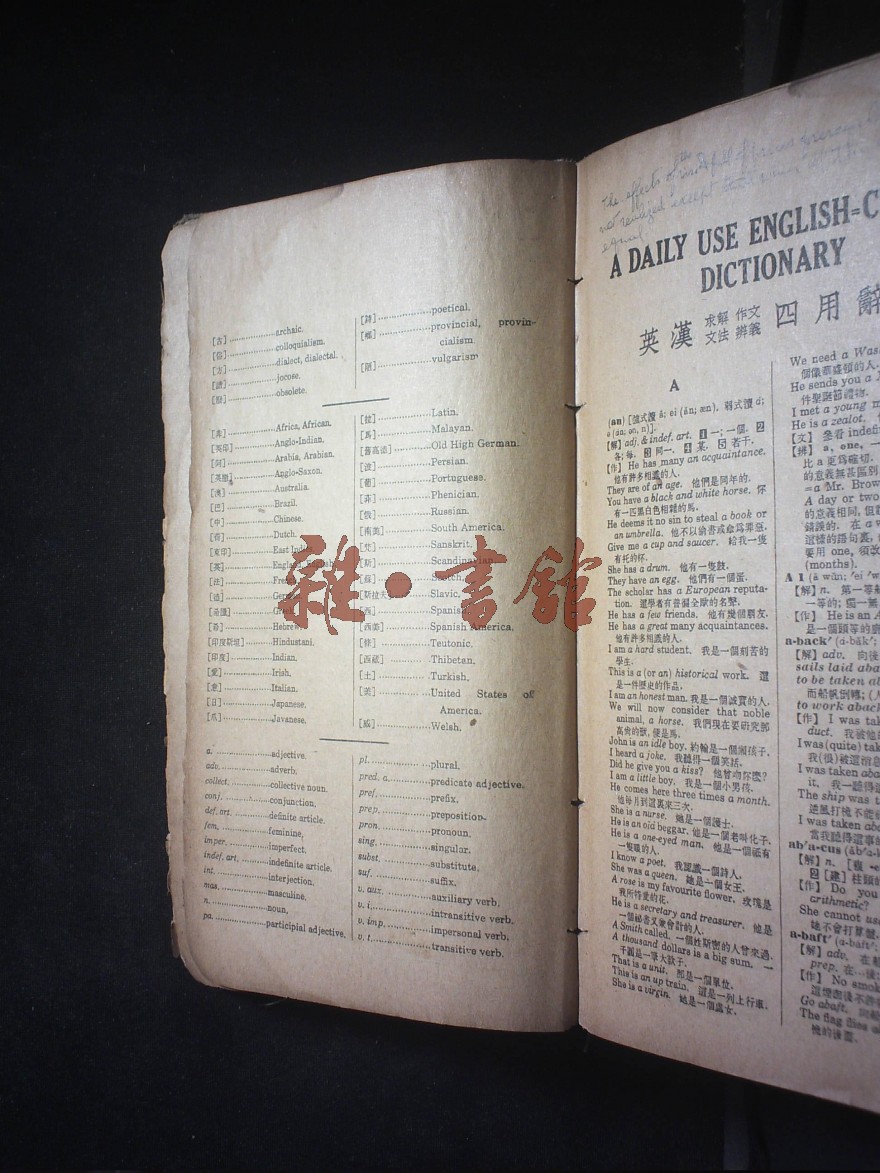 [古]..............archaic.
[俗]..............colloquialism.
[方]..............dialect, dialectal.
[謔]..............jocose.
[廢]..............obsolete.
[詩]..............poetical.
[鄉]..............provincial, provin-
cialism.
[鄙]..............vulgarism
[非]..............Africa, African.
[英印]..............Anglo-Indian.
[阿]..............Arabia, Arabian.
..............Anglo-Saxon.
[澳]..............Australia.
[巴]..............Brazil.
[中]..............Chinese.
..............Dutch.
[東印]..............East Ind
[英]..............England, English
[法]..............Fre
..............Ge
..............Greek
..............Hebrew
[印度斯坦]..............Hindustani.
[印度]..............Indian.
[愛]..............Irish.
[意]..............Italian.
[日]..............Japanese.
[爪]..............Javanese.
[拉]..............Latin.
[馬]..............Malayan.
[舊高德]..............Old High German.
[波]..............Persian.
[葡]..............Portuguese.
[菲]..............Phenician.
[俄]..............Russian.
[南美]..............South America.
[梵]..............Sanskrit.
[斯]..............Scandinavian
[蘇]..............Scotch.
[斯拉夫]..............Slavic.
[西]..............Spanish
[西美]..............Spanish America.
[條]..............Teutonic.
[西藏]..............Thibetan.
[土]..............Turkish.
[美]..............United States of
America.
[威]..............Welsh.
a. ..............adjective.
adv. ..............adverb.
collect. ..............collective noun.
conj. ..............conjunction.
def. art. ..............definite article.
fem. ..............feminine.
imper. ..............imperfect.
indef. art. ..............indefinite article.
int. ..............interjection.
mas. ..............masculine.
n. ..............noun.
pa. ..............participial adjective.
pl. ..............plural.
pred. a. ..............predicate adjective.
pref. ..............prefix.
prep. ..............preposition.
pron. ..............pronoun.
sing. ..............singular.
subst. ..............substitute.
suf. ..............suffix.
v. aux. ..............auxiliary verb.
v. i. ..............intransitive verb.
v. imp. ..............impersonal verb.
v. t. ..............transitive verb.
雜·書館
The effects of
not realized except
equal
A DAILY USE ENGLISH=C
DICTIONARY
英漢 求解 作文 文法 辨義 四用辭
A
(an) [強式讀 ā; ei (ăn; æn), 弱式讀 ɑ;
ə (ən; ən, n)].
[解] adj. & indef. art. 1 一; 一個. 2
各; 每. 3 同一. 4 某. 5 若干.
[作] He has many an acquaintance.
他有許多相識的人.
They are of an age. 他們是同年的.
You have a black and white horse. 你
有一匹黑白色相雜的馬.
He deems it no sin to steal a book or
an umbrella. 他不以偷書或傘爲罪惡.
Give me a cup and saucer. 給我一隻
有托的杯.
She has a drum. 他有一隻鼓.
They have an egg. 他們有一個蛋.
The scholar has a European reputa-
tion. 這學者有普徧全歐的名聲.
He has a few friends. 他有幾個朋友.
He has a great many acquaintances.
他有許多相識的人.
I am a hard student. 我是一個刻苦的
學生.
This is a (or an) historical work. 這
是一件歷史的作品.
I am an honest man. 我是一個誠實的人.
We will now consider that noble
animal, a horse. 我們現在要研究那
高尙的獸, 便是馬.
John is an idle boy. 約翰是一個懶孩子.
I heard a joke. 我聽得一個笑話.
Did he give you a kiss? 他曾吻你麼?
I am a little boy. 我是一個小男孩.
He comes here three times a month.
他每月到這裏來三次.
She is a nurse. 她是一個護士.
He is an old beggar. 他是一個老叫化子.
He is a one-eyed man. 他是一個祇有
一隻眼的人.
I know a poet. 我認識一個詩人.
She was a queen. 她是一個女王.
A rose is my favourite flower. 玫瑰是
我所珍愛的花.
He is a secretary and treasurer. 他是
一個祕書又兼會計的人.
A Smith called. 一個姓斯密的人曾來過.
A thousand dollars is a big sum. 一
千圓是一筆大款子.
That is a unit. 那是一個單位.
This is an up train. 這是一列上行車.
She is a virgin. 她是一個處女.
We need a Was
個像華盛頓的人.
He sends you a
件聖誕節禮物.
I met a young m
He is a zealot. 他
[文] 參看 indefi
[辨] a, one. 一
比 a 更爲確切.
的意義無甚區別
= a Mr. Brow
A day or two
的意義相同, 但
錯誤的. 在 a w
這樣的語句裏,
要用 one, 須改
(months).
A 1 (ā wŭn; 'ei 'w
[解] n. 第一等
一等的; 獨一無
[作] He is an A
是一個頭等的
a-back' (ɑ-băk';
[解] adv. 向後
sails laid aba
to be taken al
而船帆倒轉; (人
to work aback
[作] I was tak
duct. 我被他
I was (quite) tak
我(很)被這消息
I was taken aba
it. 我一聽得這
The ship was t
逆風打檣不能
I was taken abo
當我聽得這事的
ab'a-cus (ăb'ɑ-k
[解] n. [複 -c
2 [建] 柱頭的
[作] Do you
arithmetic?
She cannot us
她不會打算盤.
a-baft' (ɑ-bäft';
[解] adv. 在船
prep. 在…後;
[作] No smok
這煙囪後不許
Go abaft. 向船
The flag flies a
桅的後面.